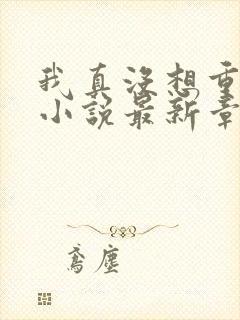 我真没想重
小说最新章
鸢尘